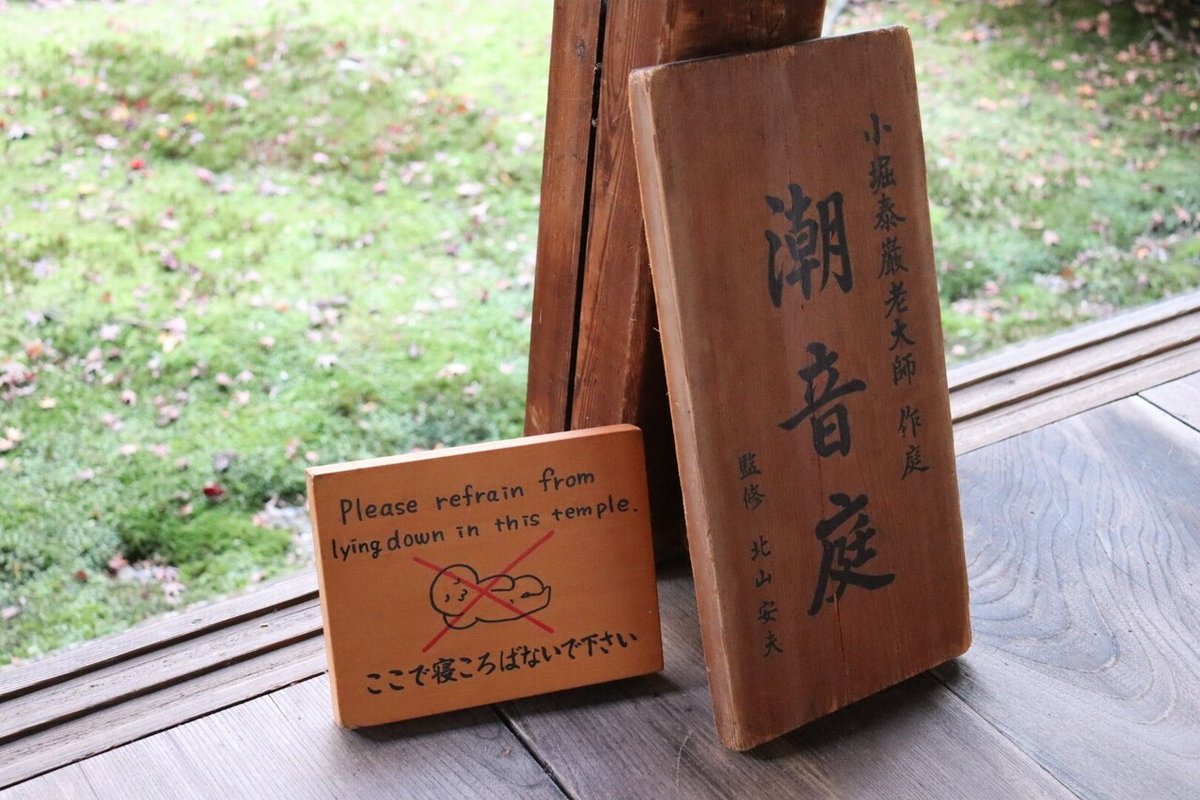 Please refrain from
lying down in this temple.
ここで寝ころばないで下さい
小堀泰巖老大師 作庭
潮音庭
監修 北山安夫